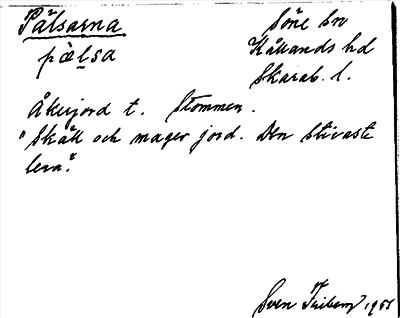 Pälsarna
Söne sn
pæ̀lsa
Kållands hd
Skarab. l.
Åkerjord t. Stommen.
"Skäll och mager jord. Den stivaste
lera."
Sven 1958